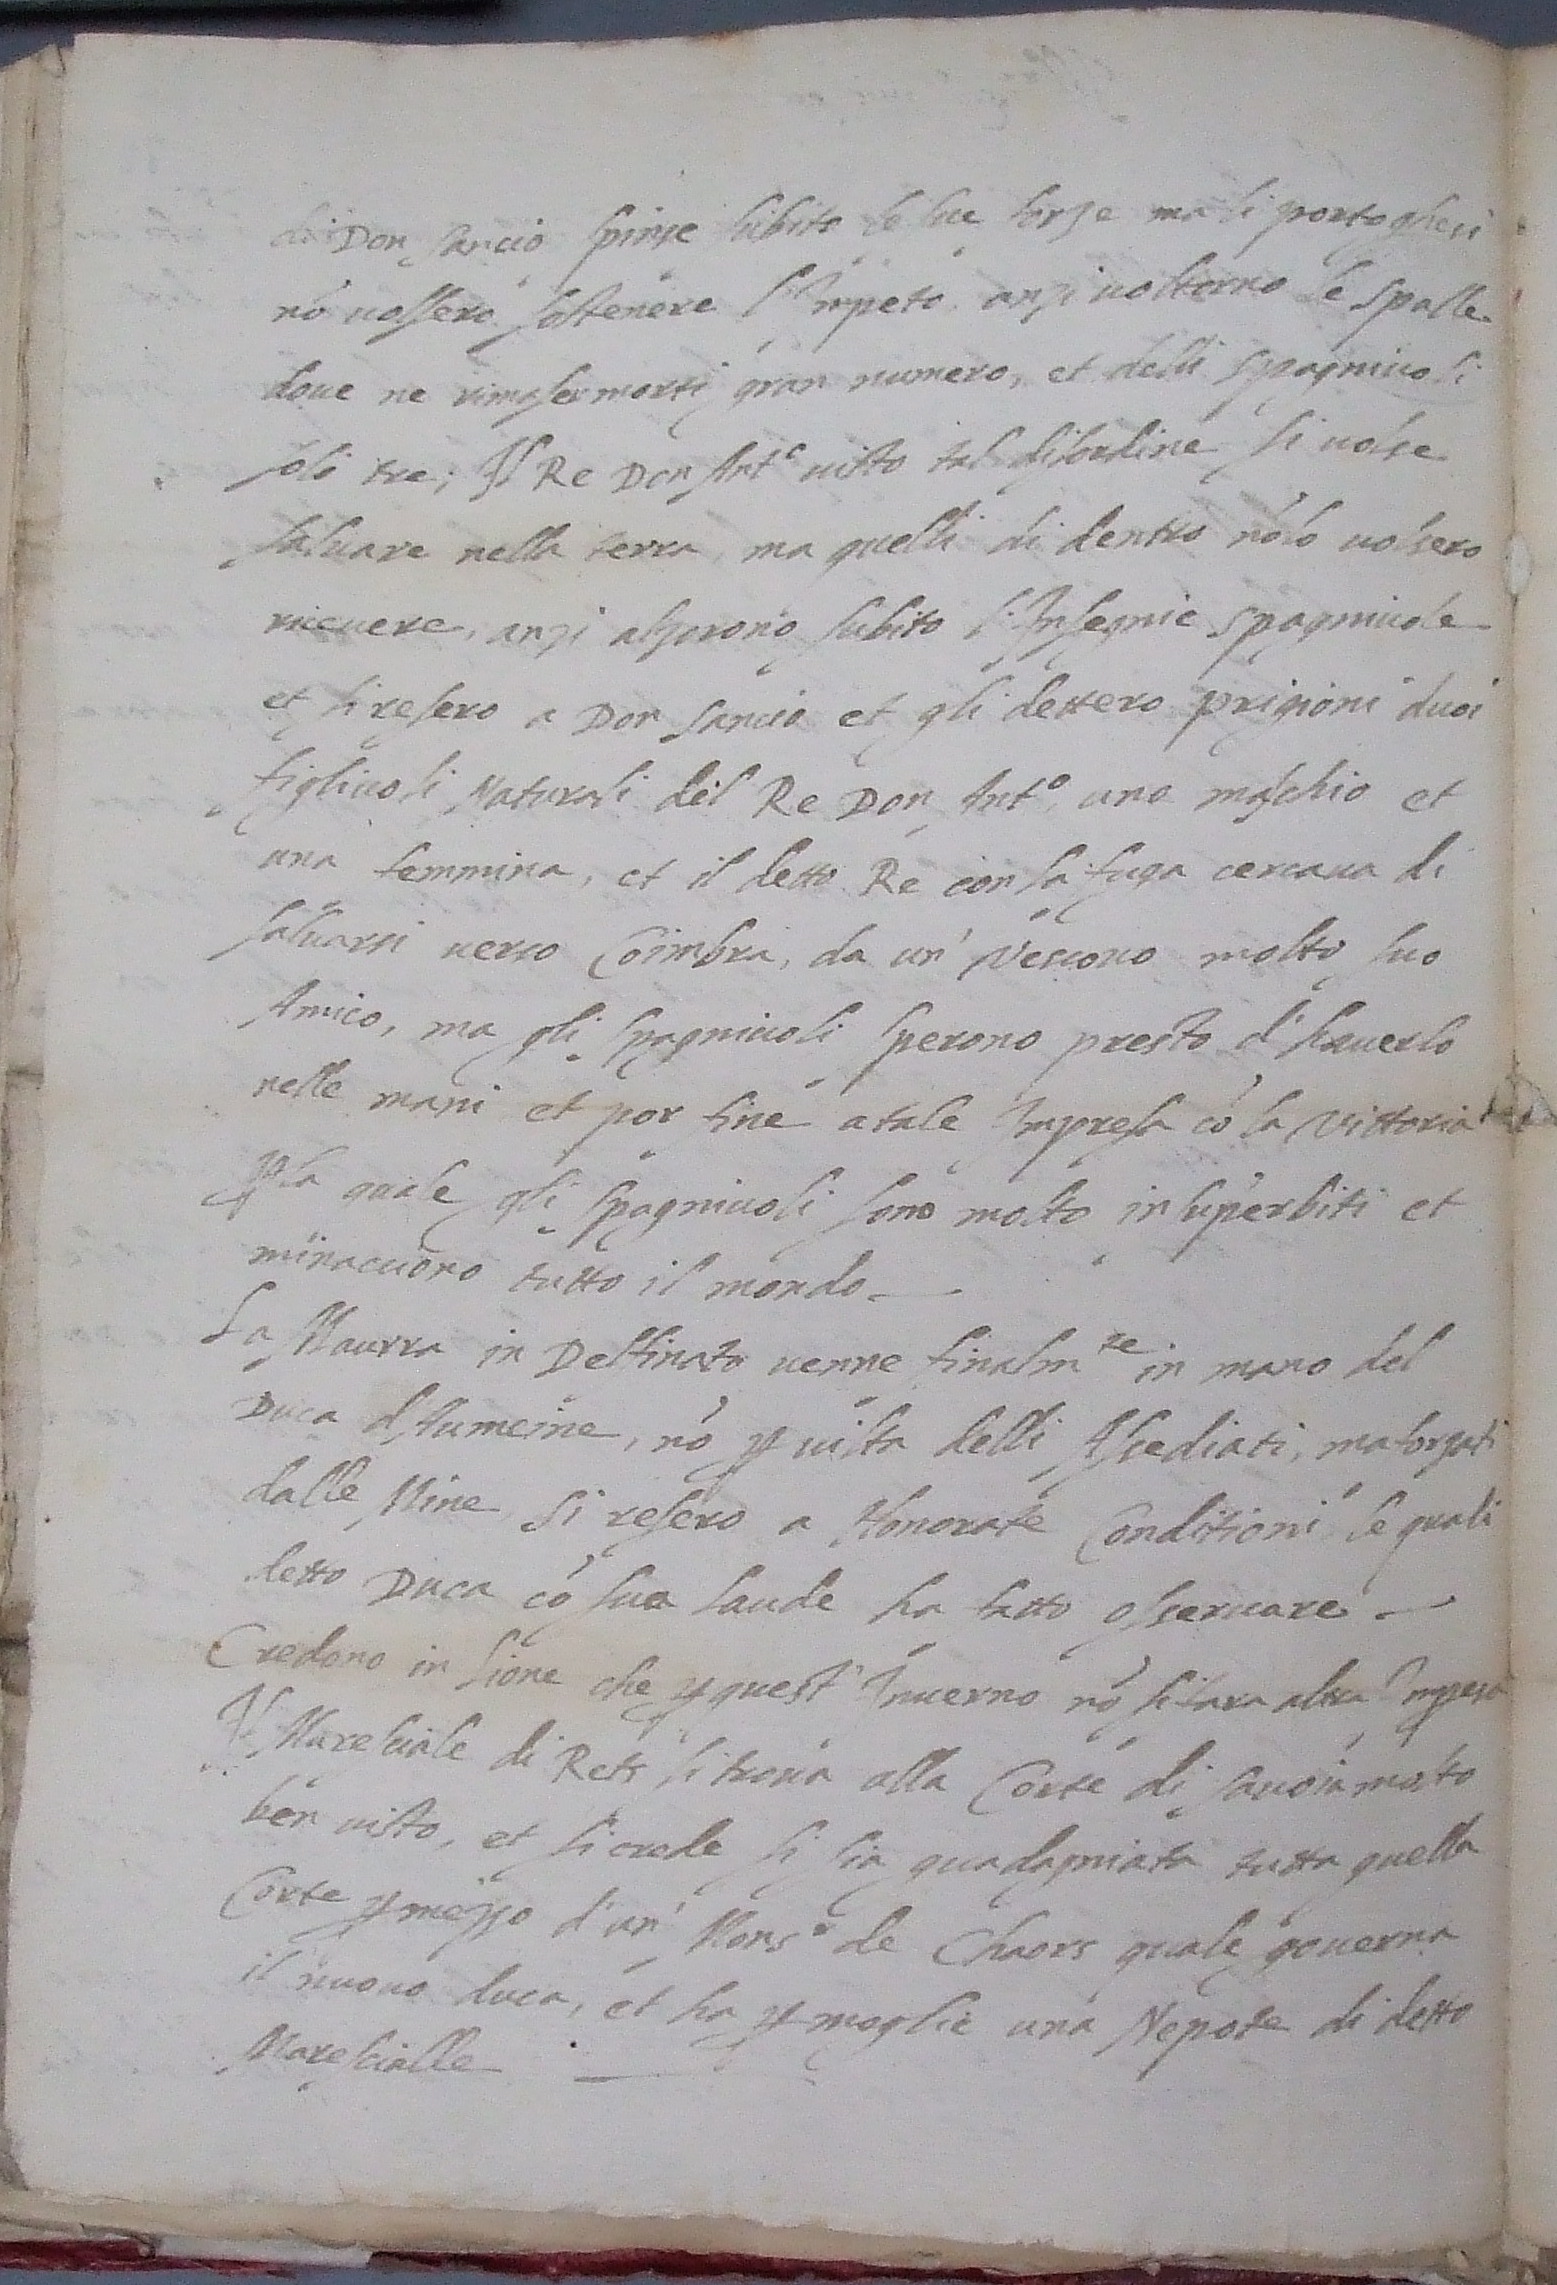 di Don Sancio spinse subito le sue forze ma li portoghesi
nó volsero sostenere l'Impeto anzi voltorno le spalle
doue ne rimaser morti gran numero, et delli spagniuoli
solo tre; Il Re Don Antº uisto tal disordine si uolse
saluare nella terra, ma quelli di dentro nó lo uolsero
riceuere, anzi alzorono subito l'Insegnie spagniuole
et si resero a Don Sancio et gli dettero prigioni duoi
figliuoli Naturali del Re Don Antº, uno maschio et
una femmina, et il detto Re con la fuga cercaua di
saluarsi uerso Coimbra, da un' Vescouo molto suo
Amico, ma gli spagniuoli sperono presto d'hauerlo
nelle mani et por fine a tale Impresa có la Vittoria
p la quale gli spagniuoli sono molto insuperbiti et
minacciono tutto il mondo —
La Murra in Delfinato uenne finalmte in mano del
Duca d'Aumeine, nó p uilta delli Assediati, ma forzati
dalle Mine si resero a Honorate Conditioni le quali
detto Duca có sua laude ha fatto osseruare —
Credono in Lione che p quest' Inuerno nó si fara altra Impresa
Il Maresciale di Rets si troua alla Corte di Sauoia molto
ben uisto, et si crede si sia guadagniata tutta quella
Corte p mezzo d'un' Monsr de Chaors quale gouerna
il nuouo duca, et ha p moglie una Nepote di detto
Marescialle —